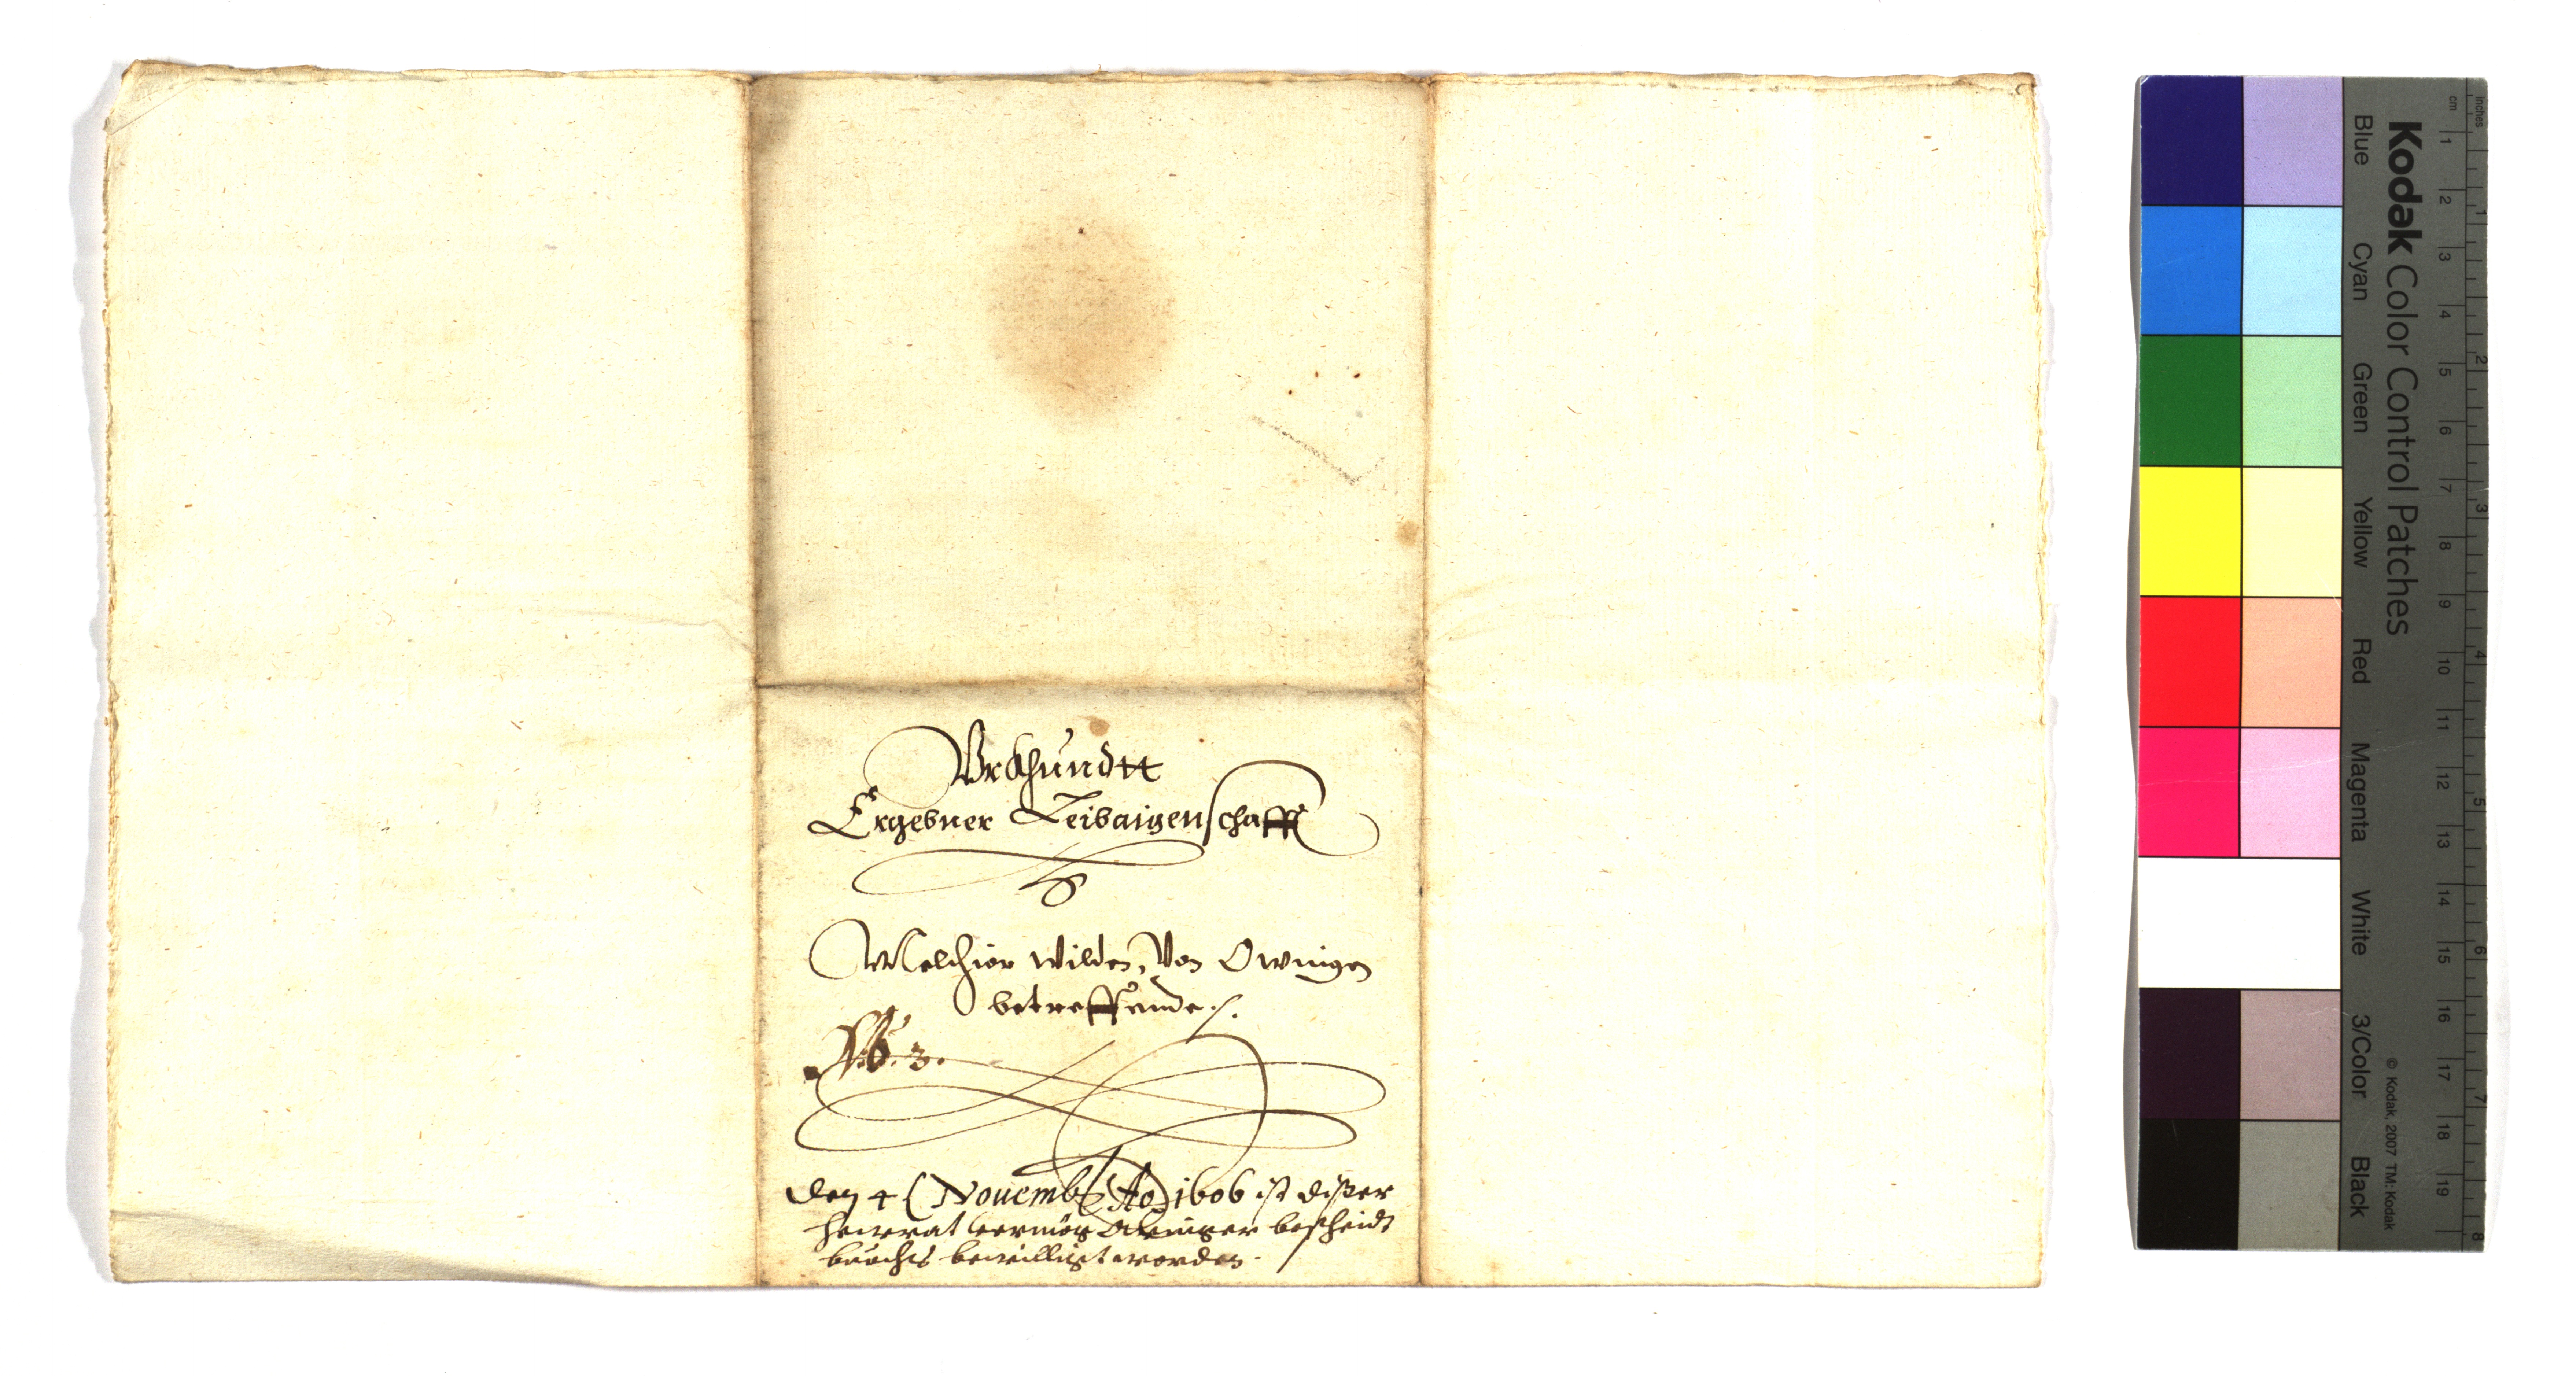 Vrkhundtt
Ergebner Leibaigenschafft
Melchior Wilden, Von Owingen
betreffende /.
No. 3.
Den 4 Nouemb Ao 1606 ist diser
heurrat vermög bescheidt
buochs bewilligt worden.
inches
cm
1 2 3 4 5 6 7 8 9 10 11 12 13 14 15 16 17 18 19
1 2 3 4 5 6 7 8
Kodak Color Control Patches
© Kodak, 2007 TM: Kodak
Blue Cyan Green Yellow Red Magenta White 3/Color Black